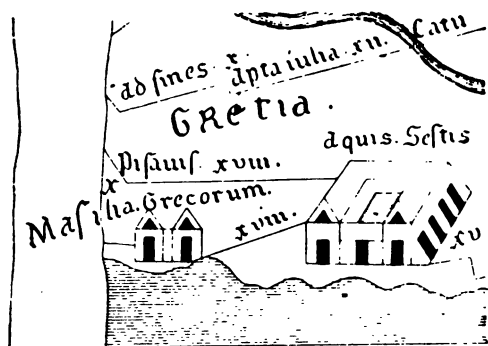 Catu
ad fines x.
apta iulia xii.
GRetia.
aquis. Sestis
pisauis xviii.
x
Masilia. Grecorum.
xviii.
xv